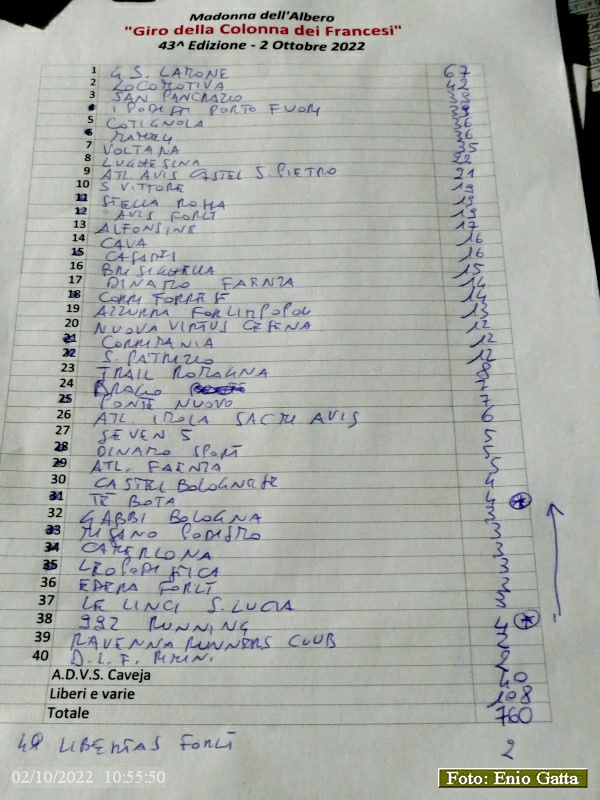 Madonna dell'Albero
"Giro della Colonna dei Francesi"
43^ Edizione - 2 Ottobre 2022
1 G.S. LAMONE 67
2 LOCOMOTIVA 42
3 SAN PANCRAZIO 39
4 I PODISTI PORTO FUORI 39
5 COTIGNOLA 36
6 36
7 VOLTANA 35
8 LUGHESINA 22
9 ATL. AVIS CASTEL S. PIETRO 21
10 S. VITTORE 19
11 STELLA ROSSA 19
12 AVIS FORLÌ 19
13 ALFONSINE 17
14 CAVA 16
15 16
16 BRISIGHELLA 15
17 DINAMO FAENZA 14
18 CORRI FORRESE 14
19 AZZURRA FORLIMPOPOLI 13
20 NUOVA VIRTUS CESENA 12
21 CORRITANIA 12
22 S. PATRIZIO 12
23 TRAIL ROMAGNA 8
24 DRAGO 7
25 PONTE NUOVO 7
26 ATL. IMOLA SACMI AVIS 6
27 SEVEN S 5
28 DINAMO SPORT 5
29 ATL. FAENZA 5
30 CASTEL BOLOGNESE 4
31 TÈ BOTA 4 *
32 GABBI BOLOGNA 3
33 MISANO PODISMO 3
34 CAMERLONA 3
35 LEOPODISTICA 3
36 EDERA FORLÌ 3
37 LE LINCI S. LUCIA 3
38 992 RUNNING 4 *
39 RAVENNA RUNNERS CLUB 2
40 D.L.F. RIMINI 2
A.D.V.S. Caveja 40
Liberi e varie 108
Totale 760
41 LIBERTAS FORLÌ 2
02/10/2022 10:55:50
Foto: Enio Gatta